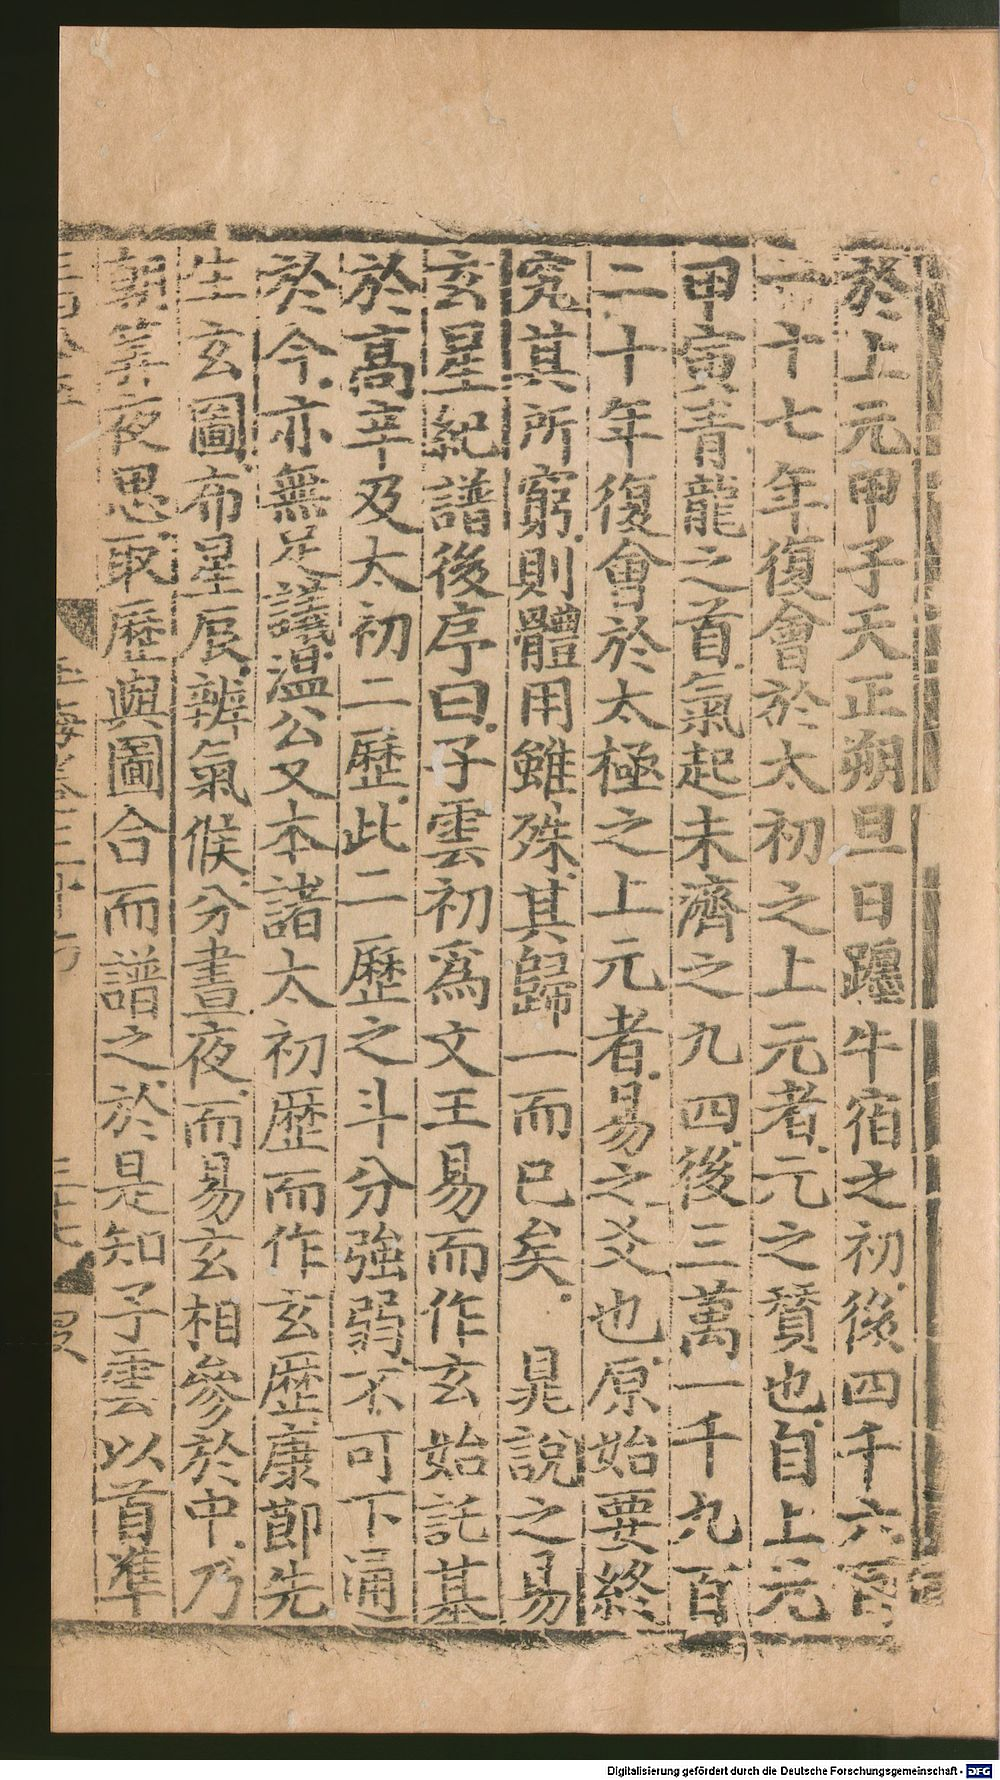 於上元甲子天正朔旦日躔牛宿之初後四千六百
一十七年復會於太初之上元者元之贊也自上元
甲寅青龍之首氣起未濟之九四後三萬一千九百
二十年復會於太極之上元者易之爻也原始要終
究其所窮則體用雖殊其歸一而已矣。　晁說之易
玄星紀譜後序曰子雲初爲文王易而作玄始託基
於高辛及太初二歷此二歷之斗分強弱不可下通
於今亦無足議溫公又本諸太初歷而作玄歷康節先
生玄圖布星辰辨氣候分晝夜而易玄相參於中乃
朝筭夜思取歷與圖合而譜之於是知子雲以首準
三十七
Digitalisierung gefördert durch die Deutsche Forschungsgemeinschaft - DFG